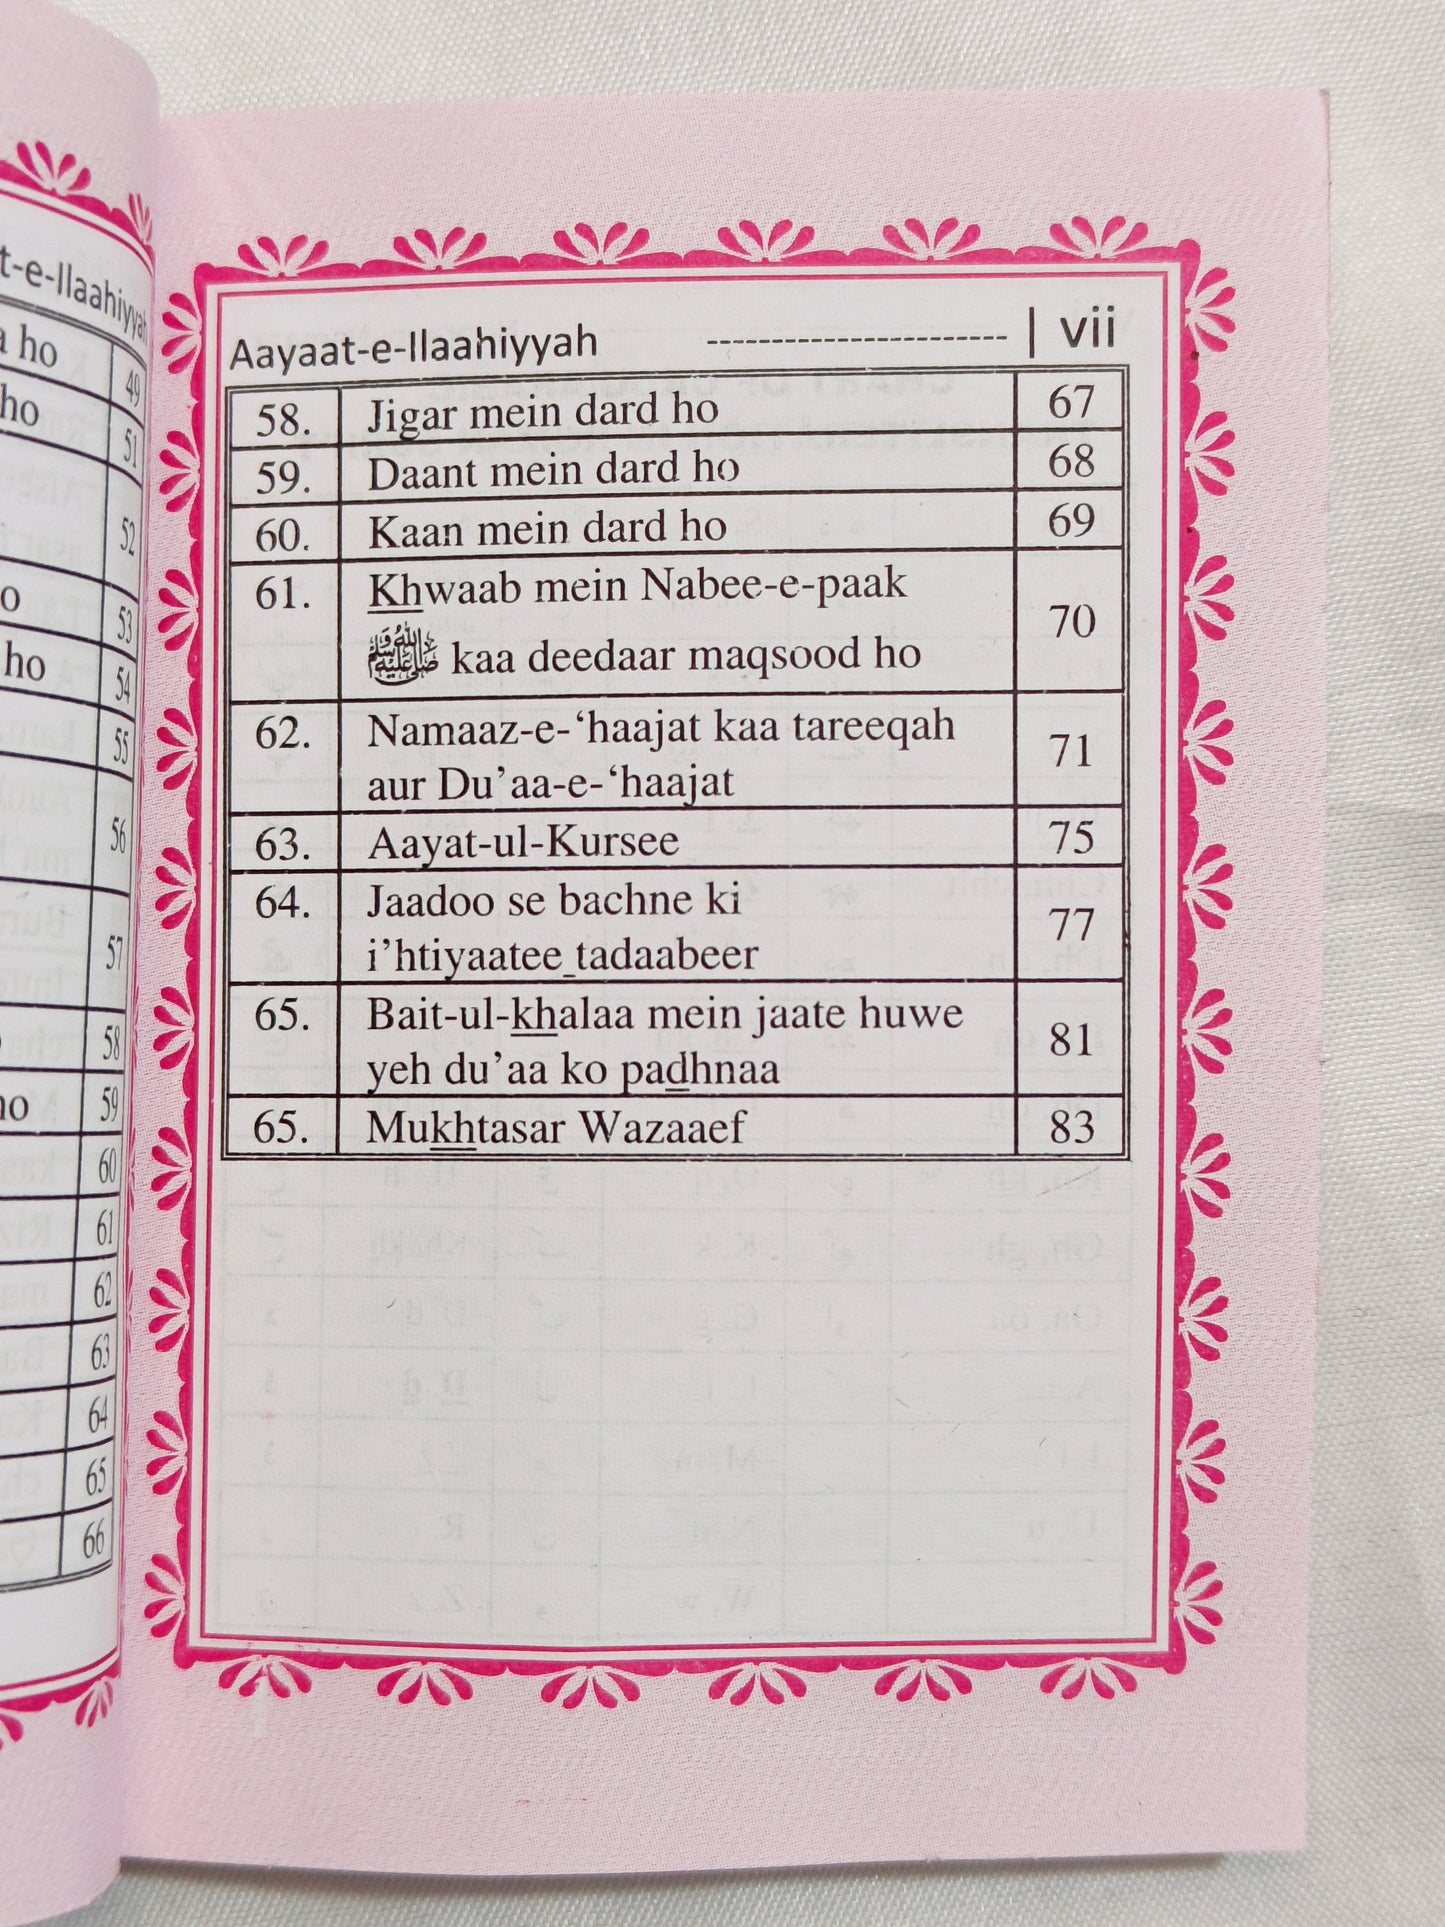 t-e-Ilaahiyyah
a ho 49
ho 51
52
o 53
ho 54
55
56
57
58
ho 59
60
61
62
63
64
65
66
Aayaat-e-Ilaahiyyah ----------------------- | vii
58. Jigar mein dard ho 67
59. Daant mein dard ho 68
60. Kaan mein dard ho 69
61. Khwaab mein Nabee-e-paak
ﷺ kaa deedaar maqsood ho 70
62. Namaaz-e-‘haajat kaa tareeqah
aur Du’aa-e-‘haajat 71
63. Aayat-ul-Kursee 75
64. Jaadoo se bachne ki
i’htiyaatee tadaabeer 77
65. Bait-ul-khalaa mein jaate huwe
yeh du’aa ko padhnaa 81
65. Mukhtasar Wazaaef 83